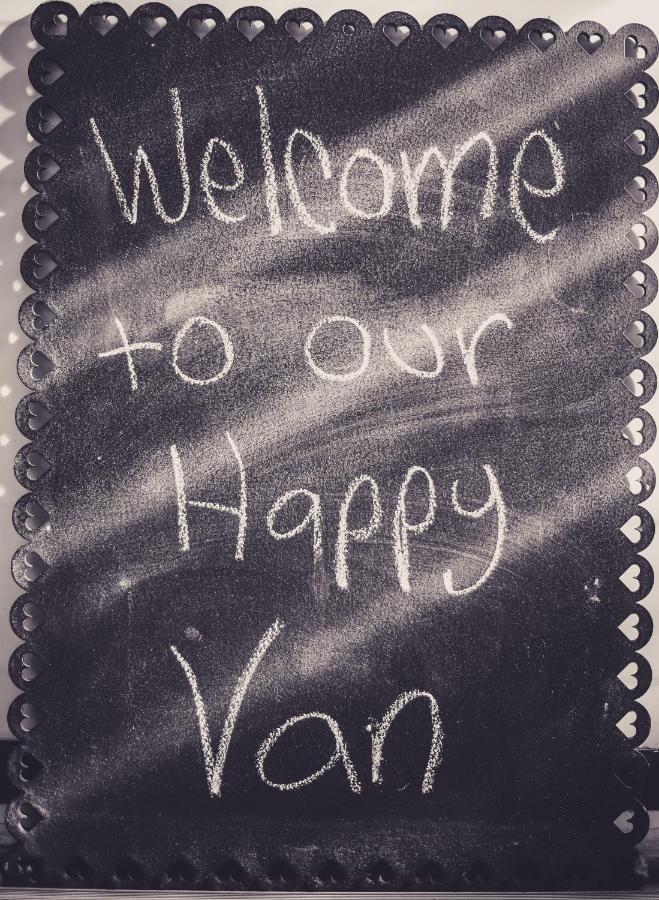 Welcome
to our
Happy
Van